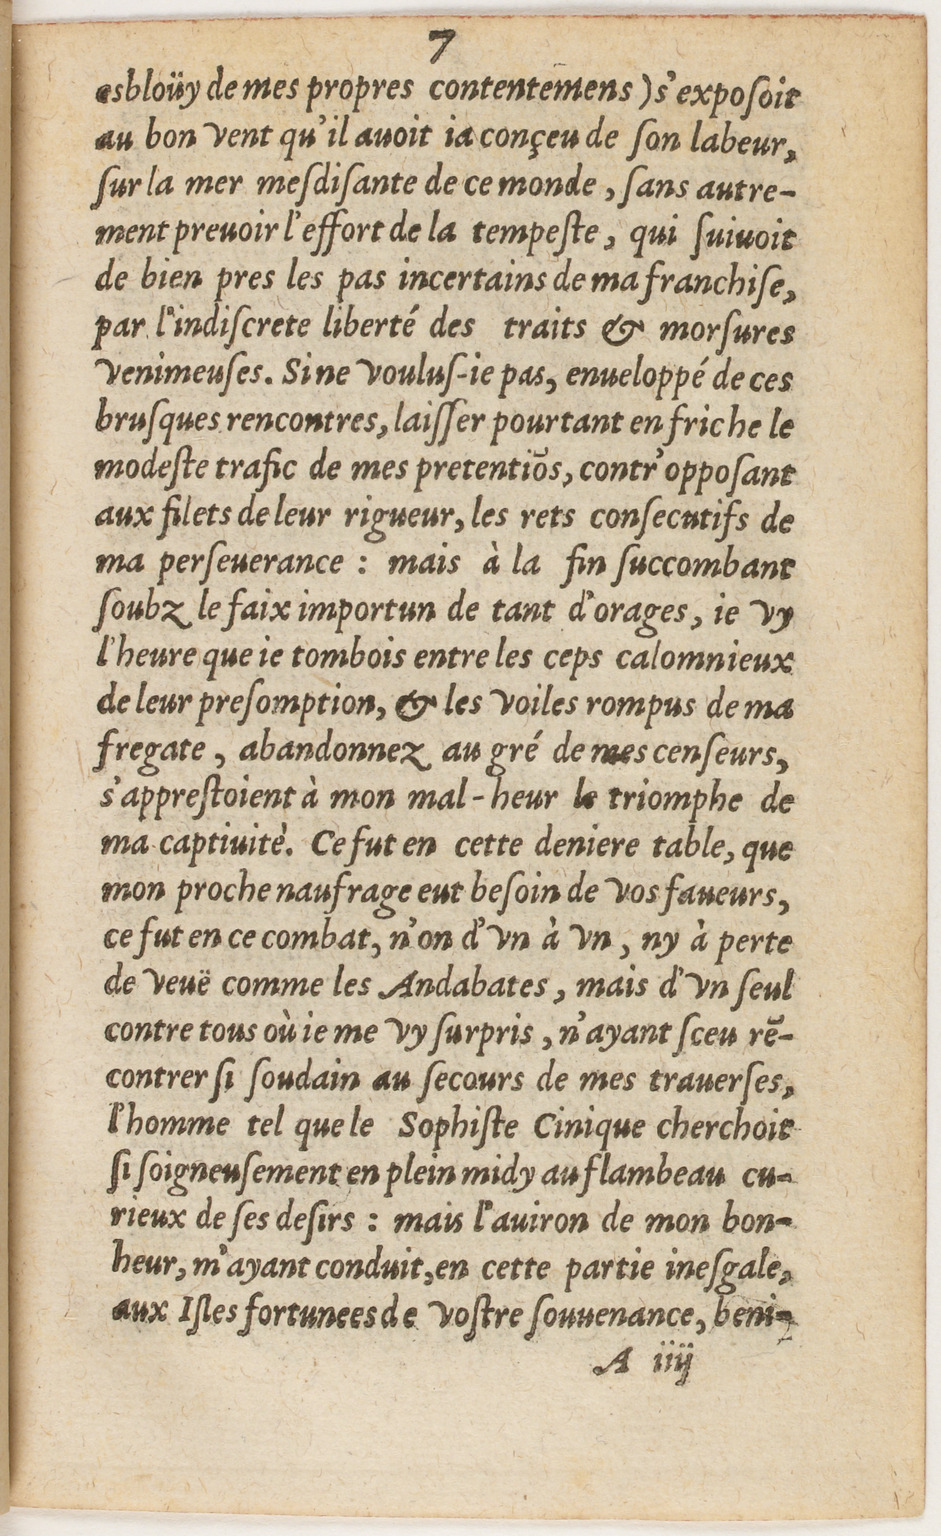 7
esbloüy de mes propres contentemens) s'exposoit
au bon vent qu'il auoit ia conçeu de son labeur,
sur la mer mesdisante de ce monde, sans autre-
ment preuoir l'effort de la tempeste, qui suiuoit
de bien pres les pas incertains de ma franchise,
par l'indiscrete liberté des traits & morsures
venimeuses. Si ne voulus-ie pas, enueloppé de ces
brusques rencontres, laisser pourtant en friche le
modeste trafic de mes pretentiõs, contr'opposant
aux filets de leur rigueur, les rets consecutifs de
ma perseuerance : mais à la fin succombant
soubz le faix importun de tant d'orages, ie vy
l'heure que ie tombois entre les ceps calomnieux
de leur presomption, & les voiles rompus de ma
fregate, abandonnez au gré de mes censeurs,
s'apprestoient à mon mal-heur le triomphe de
ma captiuitè. Ce fut en cette deniere table, que
mon proche naufrage eut besoin de vos faueurs,
ce fut en ce combat, n'on d'vn à vn, ny à perte
de veuë comme les Andabates, mais d'vn seul
contre tous où ie me vy surpris, n'ayant sceu rẽ-
contrer si soudain au secours de mes trauerses,
l'homme tel que le Sophiste Cinique cherchoit
si soigneusement en plein midy au flambeau cu-
rieux de ses desirs : mais l'auiron de mon bon-
heur, m'ayant conduit, en cette partie inesgale,
aux Isles fortunees de vostre souuenance, beni-
A iiij